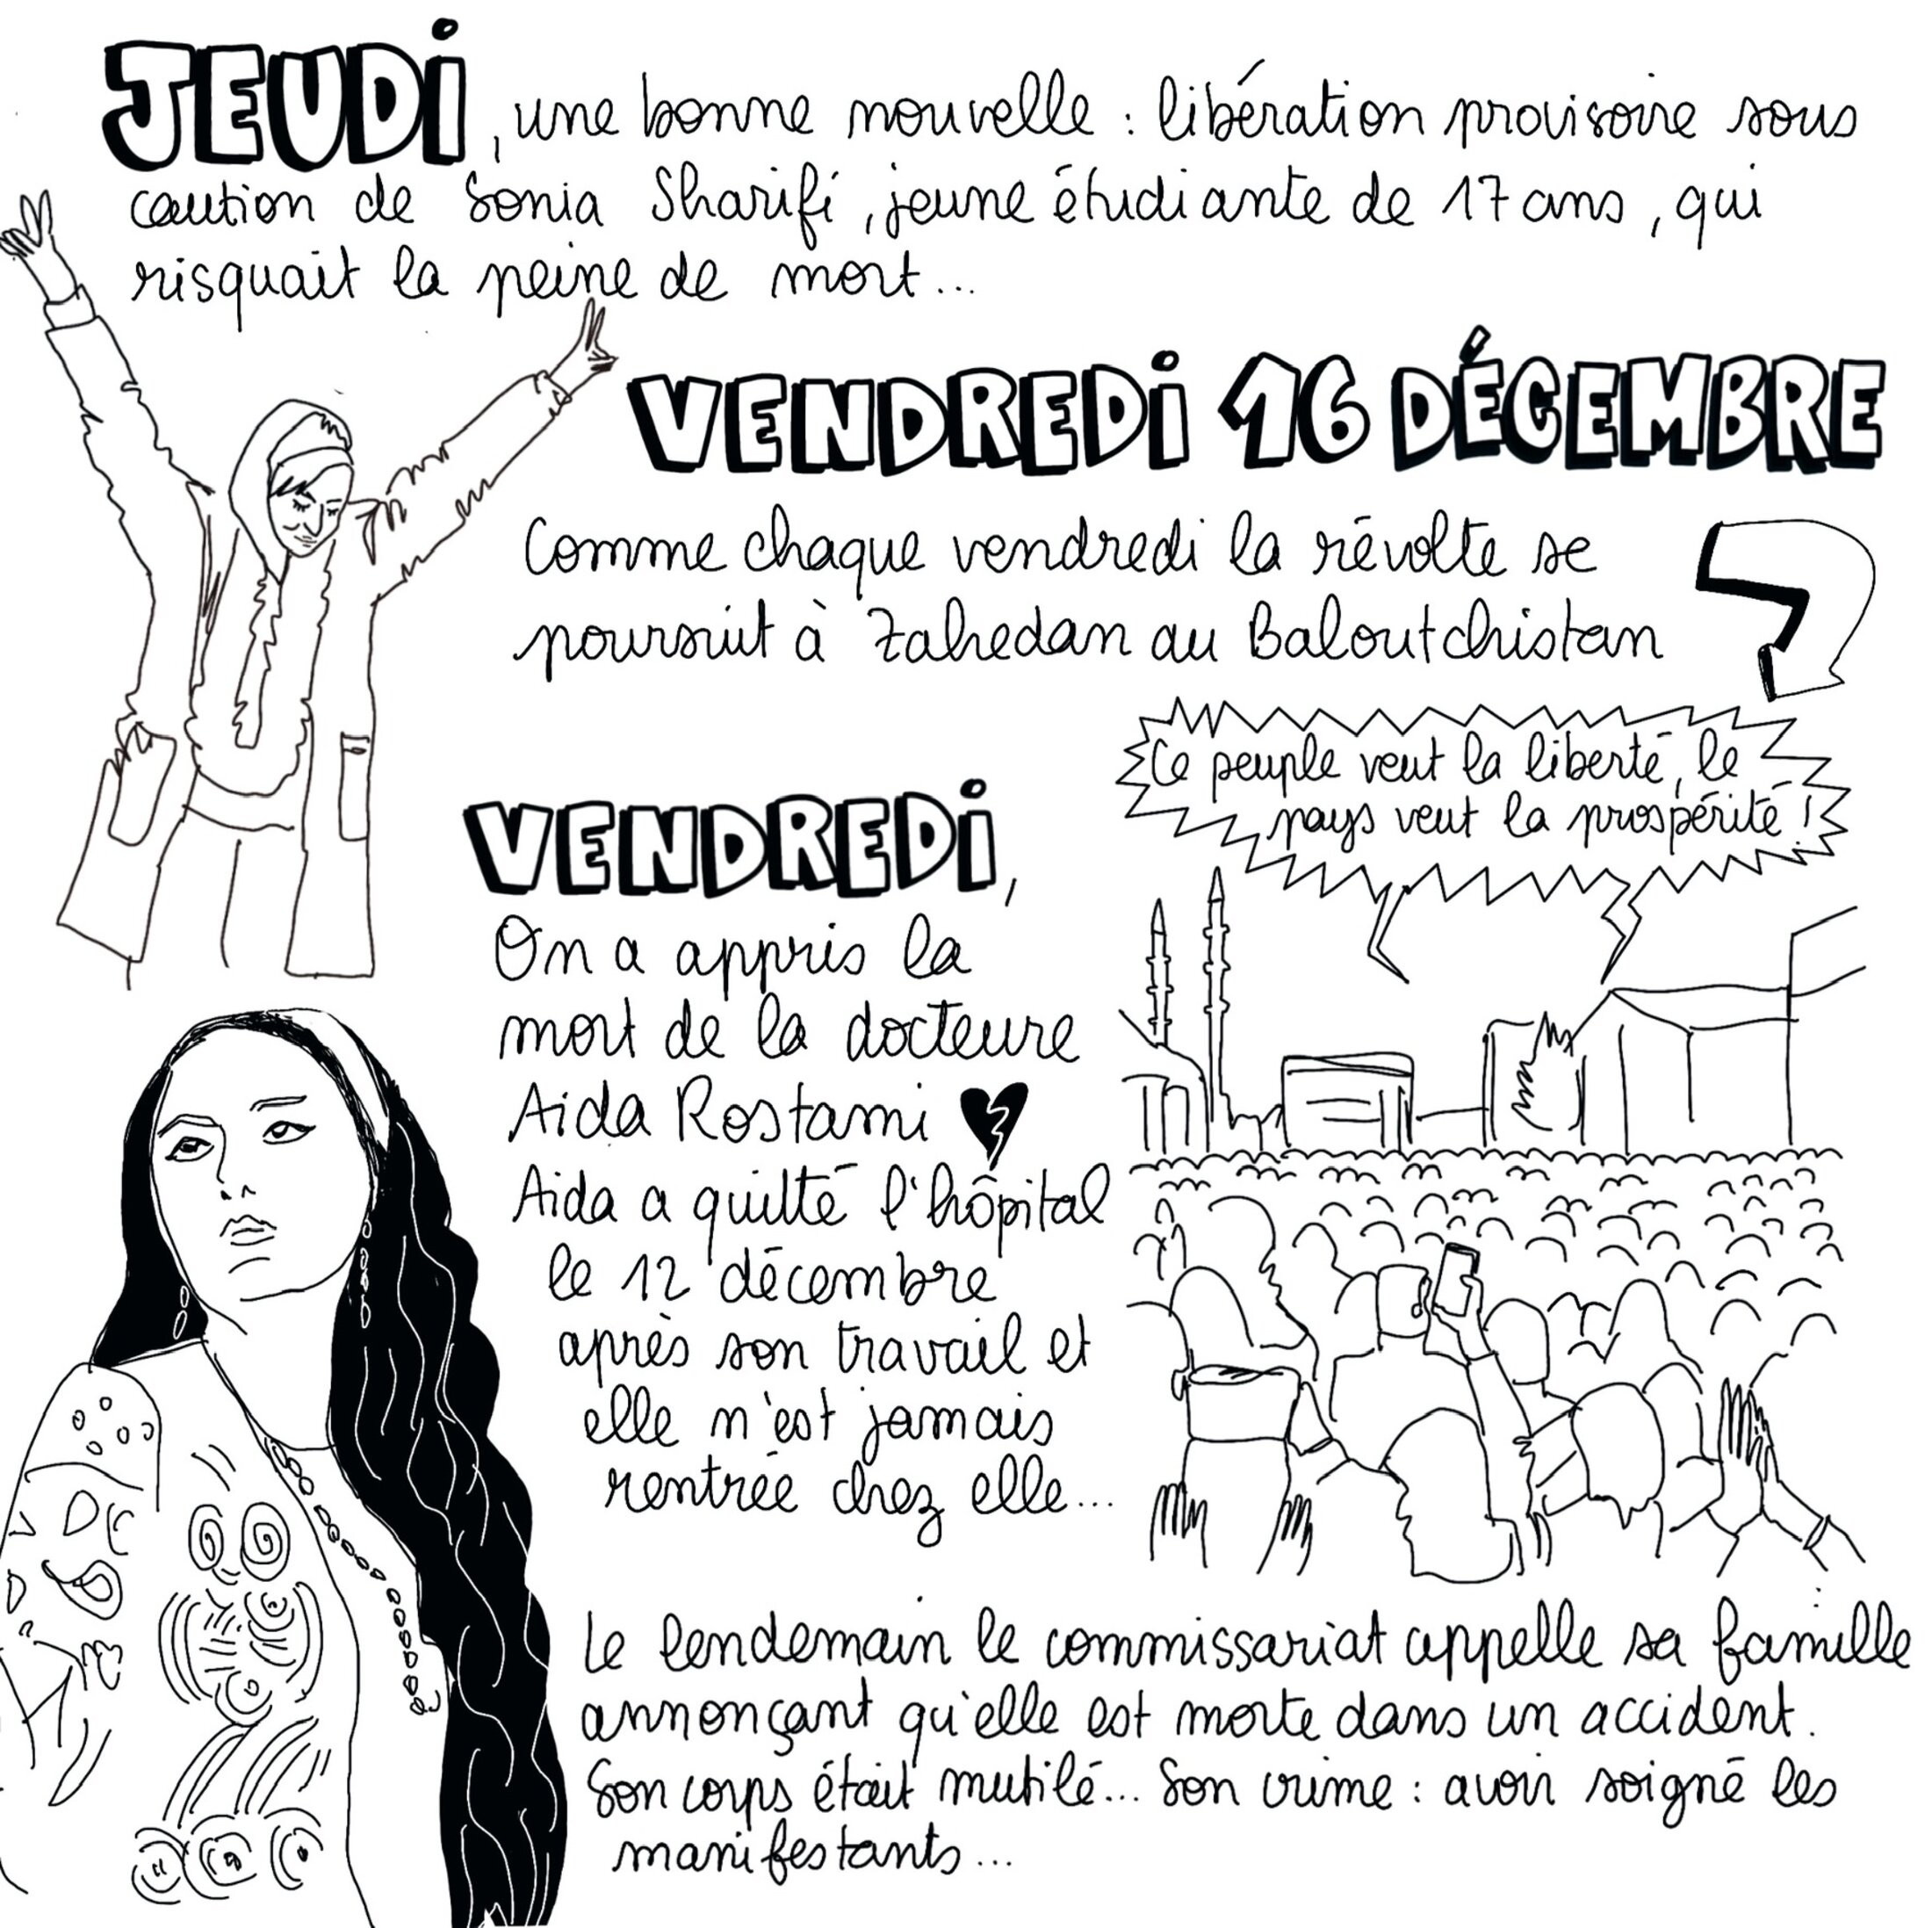 JEUDI, une bonne nouvelle : libération provisoire sous
caution de Sonia Sharifi, jeune étudiante de 17 ans, qui
risquait la peine de mort...
VENDREDI 16 DÉCEMBRE
Comme chaque vendredi la révolte se
poursuit à Zahedan au Baloutchistan
Ce peuple veut la liberté, le
pays veut la prospérité !
VENDREDI,
On a appris la
mort de la docteure
Aida Rostami
Aida a quitté l'hôpital
le 12 décembre
après son travail et
elle n'est jamais
rentrée chez elle...
Le lendemain le commissariat appelle sa famille
annonçant qu'elle est morte dans un accident.
Son corps était mutilé... Son crime : avoir soigné les
manifestants...